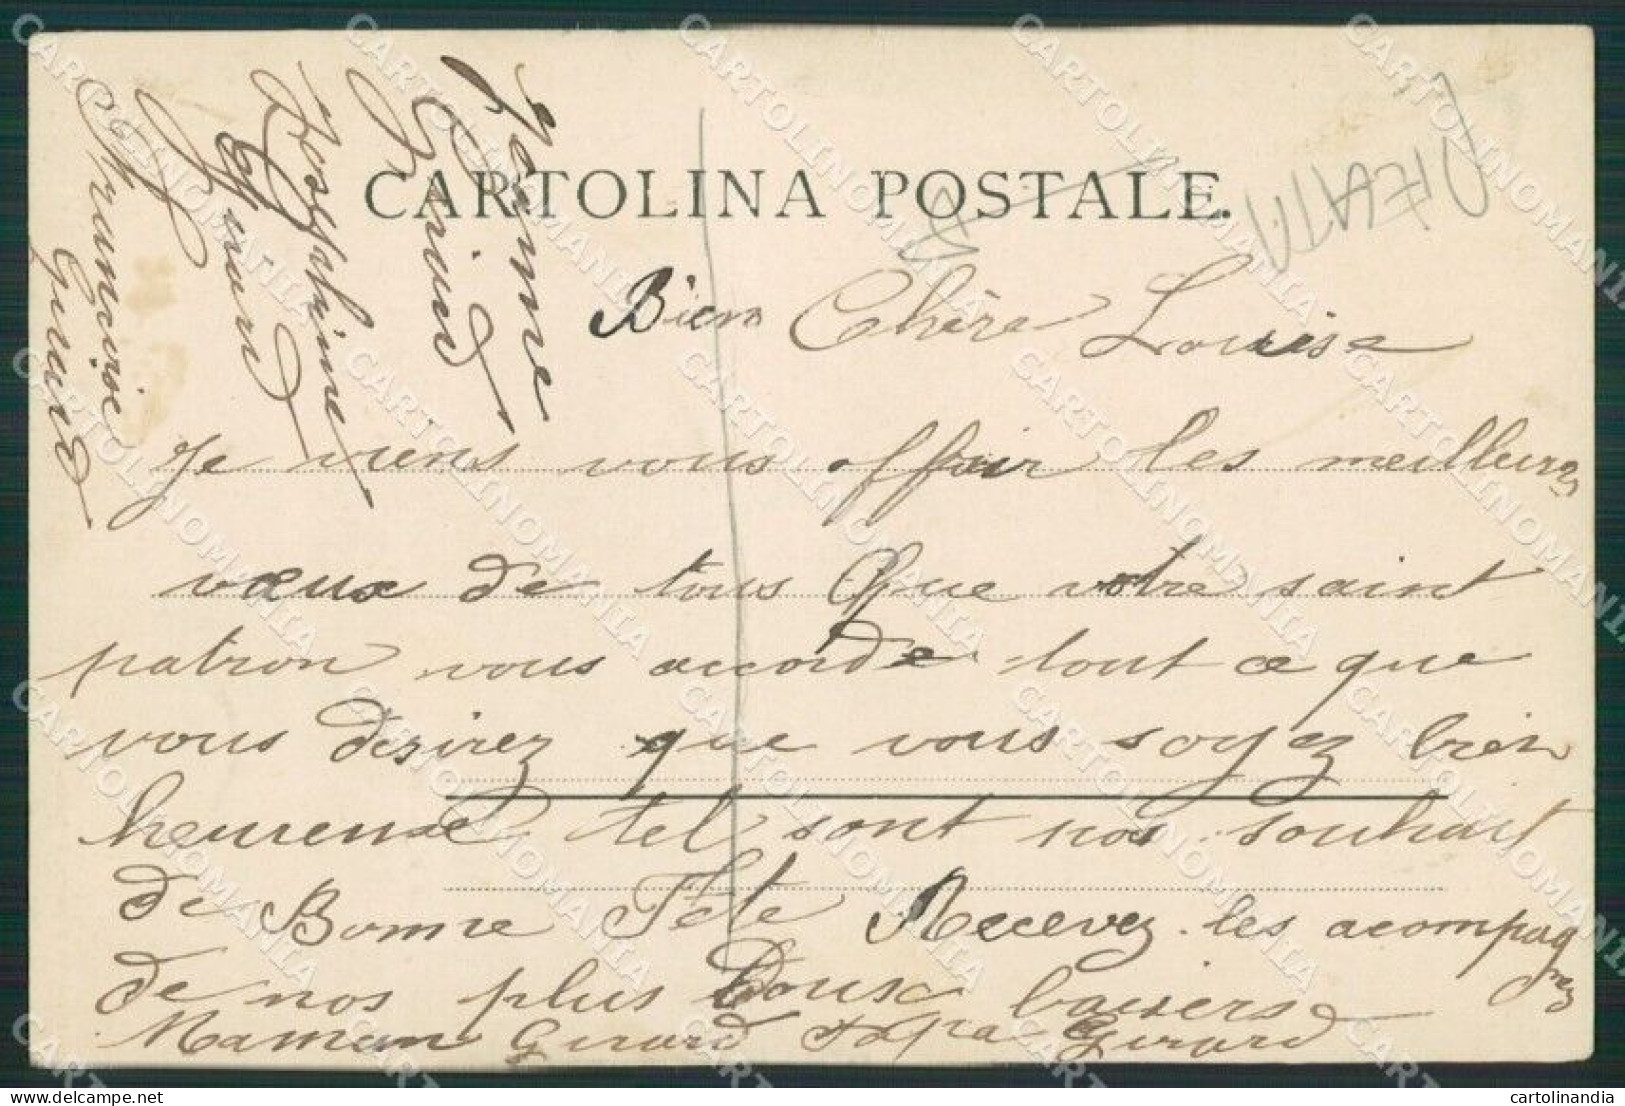 CARTOLINA POSTALE.
Bien Chère Louise
Je viens vous offrir les meilleurs
vœux de tous Que votre saint
patron vous accorde tout ce que
vous désirez que vous soyez bien
heureuse tel sont nos souhait
de Bonne Fête Recevez les acompagnez
de nos plus Doux baisers
Maman Girard Papa Girard
Jeanne
Girard
Josephine
Girard
Francoise
Girard
cartolinandia